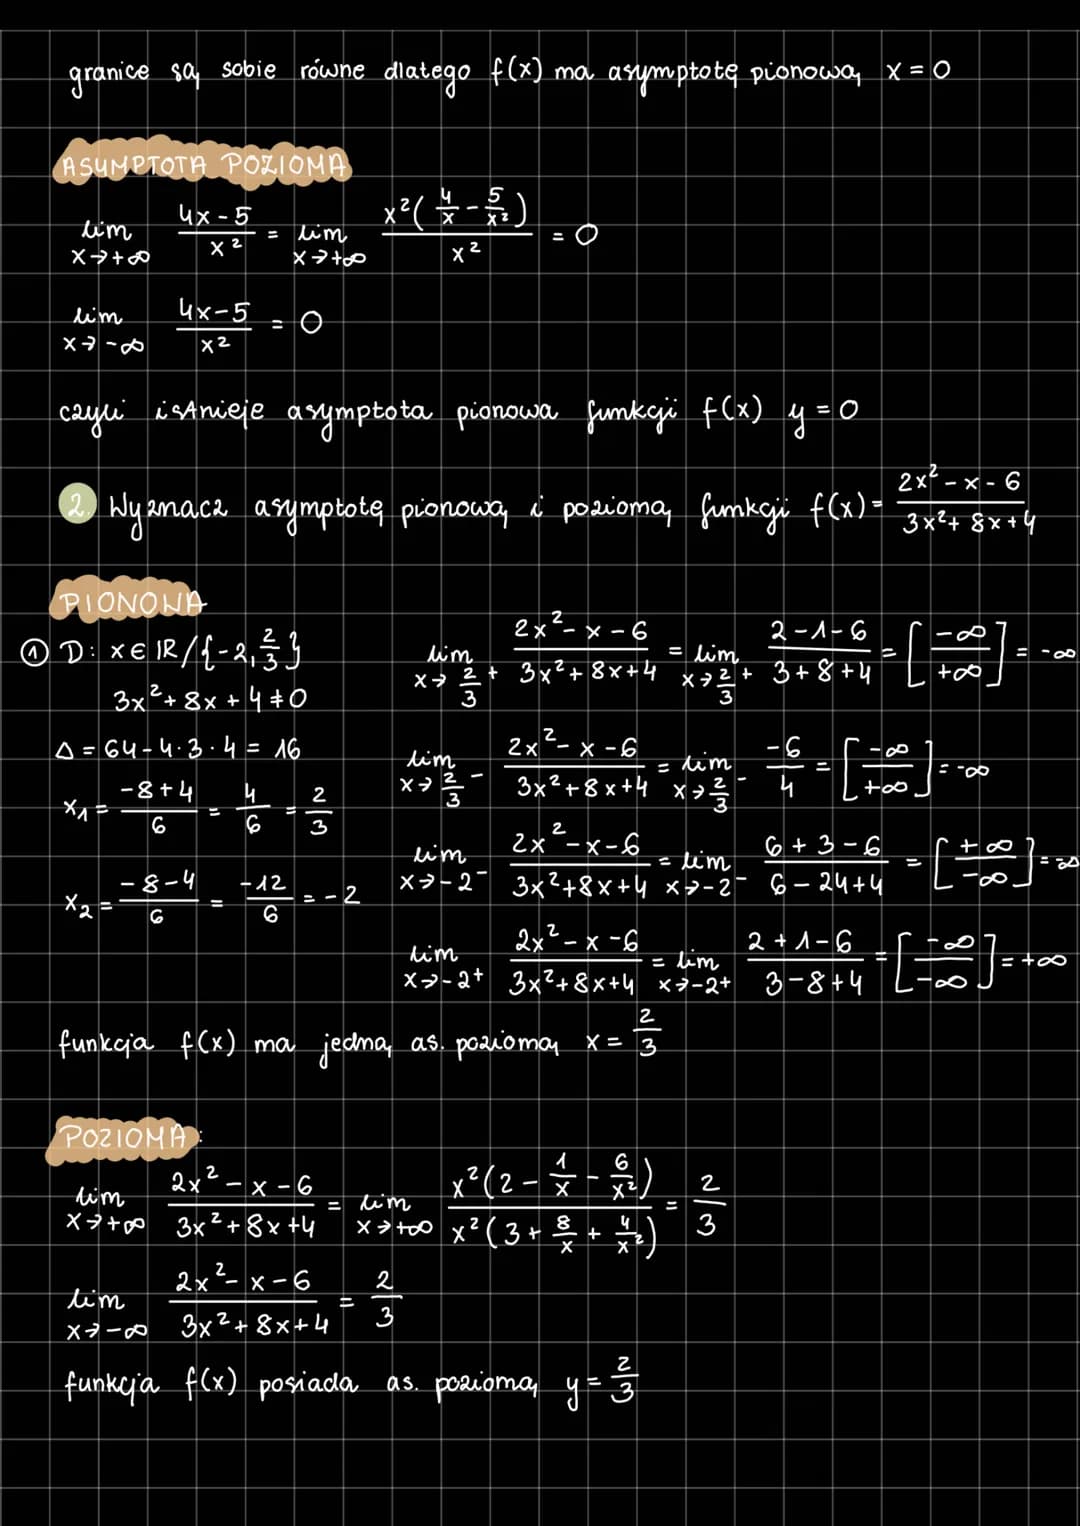 granice są sobie równe dlatego f(x) ma asymptotę pionową x = 0
ASYMPTOTA POZIOMA
lim x→+∞ (4x-5)/x² = lim x→+∞ x²(4/x - 5/x²)/x² = 0
lim x→-∞ (4x-5)/x² = 0
czyli istnieje asymptota pionowa funkcji f(x) y = 0
2. Wyznacz asymptotę pionową i poziomą funkcji f(x) = (2x² - x - 6)/(3x² + 8x + 4)
PIONOWA
① D: x ∈ IR/{-2, 2/3}
3x² + 8x + 4 ≠ 0
Δ = 64 - 4·3·4 = 16
x₁ = (-8+4)/6 = 4/6 = 2/3
x₂ = (-8-4)/6 = -12/6 = -2
lim x→2/3⁺ (2x² - x - 6)/(3x² + 8x + 4) = lim x→2/3⁺ (2-1-6)/(3+8+4) = [-∞/+∞] = -∞
lim x→2/3⁻ (2x² - x - 6)/(3x² + 8x + 4) = lim x→2/3⁻ -6/4 = [-∞/+∞] = -∞
lim x→-2⁻ (2x² - x - 6)/(3x² + 8x + 4) = lim x→-2⁻ (6+3-6)/(6-24+4) = [+∞/-∞] = -∞
lim x→-2⁺ (2x² - x - 6)/(3x² + 8x + 4) = lim x→-2⁺ (2+1-6)/(3-8+4) = [-∞/-∞] = +∞
funkcja f(x) ma jedną as. poziomą x = 2/3
POZIOMA:
lim x→+∞ (2x² - x - 6)/(3x² + 8x + 4) = lim x→+∞ x²(2 - 1/x - 6/x²)/x²(3 + 8/x + 4/x²) = 2/3
lim x→-∞ (2x² - x - 6)/(3x² + 8x + 4) = 2/3
funkcja f(x) posiada as. poziomą y = 2/3